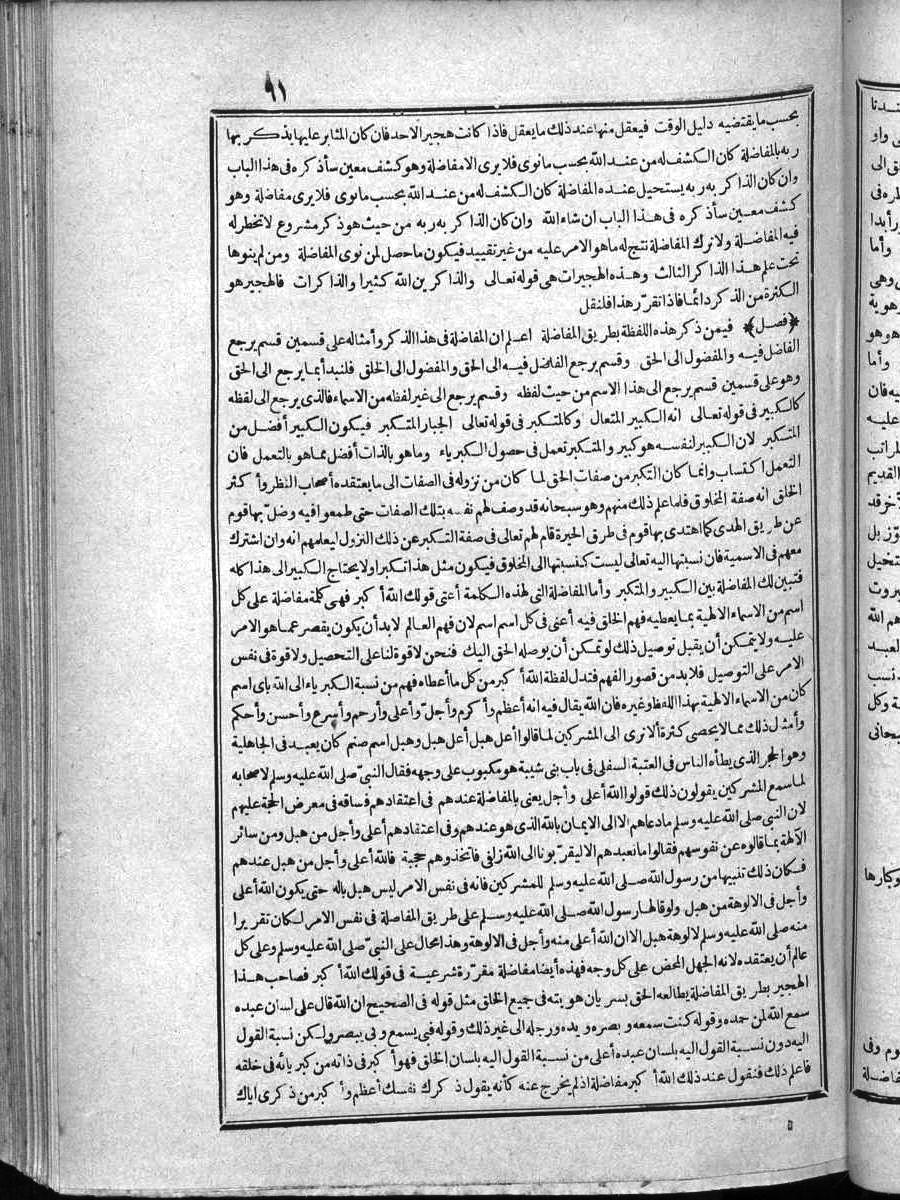 ٩١
بحسب ما يقتضيه دليل الوقت فيعقل منها عند ذلك ما يعقل فاذا كانت هجير الاحد فان كان المثابر عليها يذكر بها
ربه بالمفاضلة كان الكشف له من عند الله بحسب ما نوى فلا يرى الا مفاضلة وهو كشف معين سأذكره فى هذا الباب
وان كان الذاكر به ربه يستحيل عنده المفاضلة كان الكشف له من عند الله بحسب ما نوى فلا يرى مفاضلة وهو
كشف معين سأذكره فى هذا الباب ان شاء الله وان كان الذاكر به ربه من حيث هو ذكر مشروع لا تخطر له
فيه المفاضلة ولا ترك المفاضلة نتج له ما هو الامر عليه من غير تقييد فيكون ما حصل لمن نوى المفاضلة ومن لم ينوها
تحت علم هذا الذاكر الثالث وهذه الهجيرات هى قوله تعالى والذاكرين الله كثيرا والذاكرات فالهجير هو
الكثرة من الذكر دائما فاذا تقرّر هذا فلنقل
﴿فصل﴾ فيمن ذكر هذه اللفظة بطريق المفاضلة اعلم ان المفاضلة فى هذا الذكر وأمثاله على قسمين قسم يرجع
الفاضل فيه والمفضول الى الحق وقسم يرجع الفاضل فيه الى الحق والمفضول الى الخلق فلنبدأ بما يرجع الى الحق
وهو على قسمين قسم يرجع الى هذا الاسم من حيث لفظه وقسم يرجع الى غير لفظه من الاسماء فالذى يرجع الى لفظه
كالكبير فى قوله تعالى انه الكبير المتعال وكالمتكبر فى قوله تعالى الجبار المتكبر فيكون الكبير أفضل من
المتكبر لان الكبير لنفسه هو كبير والمتكبر تعمل فى حصول الكبرياء وما هو بالذات أفضل مما هو بالتعمل فان
التعمل اكتساب وانما كان التكبر من صفات الحق لما كان من نزوله فى الصفات الى ما يعتقده أصحاب النظر وأكثر
الخلق انه صفة المخلوق فلما علم ذلك منهم وهو سبحانه قد وصف لهم نفسه بتلك الصفات حتى طمعوا فيه وضلّ بها قوم
عن طريق الهدى كما اهتدى بها قوم فى طرق الحيرة قام لهم تعالى فى صفة التكبر عن ذلك النزول ليعلمهم انه وان اشترك
معهم فى الاسمية فان نسبتها اليه تعالى ليست كنسبتها الى المخلوق فيكون مثل هذا تكبرا ولا يحتاج الكبير الى هذا كله
فتبين لك المفاضلة بين الكبير والمتكبر وأما المفاضلة التى لهذه الكلمة أعنى قولك الله أكبر فهى كلمة مفاضلة على كل
اسم من الاسماء الالهية بما يعطيه فهم الخلق فيه أعنى فى كل اسم اسم لان فهم العالم لا بد أن يكون يقصر عما هو الامر
عليه ولا يتمكن أن يقبل توصيل ذلك لو تمكن أن يوصله الحق اليك فنحن لا قوة لنا على التحصيل ولا قوة فى نفس
الامر على التوصيل فلا بد من قصور الفهم فتدل لفظة الله أكبر من كل ما أعطاه فهم من نسبة الكبرياء الى الله باى اسم
كان من الاسماء الالهية بهذا اللفظ وغيره فان الله يقال فيه انه أعظم وأكرم وأجلّ وأعلى وأرحم وأسرع وأحسن وأحكم
وأمثال ذلك مما لا يحصى كثرة ألا ترى الى المشركين لما قالوا أعل هبل أعل هبل وهبل اسم صنم كان يعبد فى الجاهلية
وهو الحجر الذى يطأه الناس فى العتبة السفلى فى باب بنى شيبة هو مكبوب على وجهه فقال النبىّ صلى الله عليه وسلم لاصحابه
لما سمع المشركين يقولون ذلك قولوا الله أعلى وأجل يعنى بالمفاضلة عندهم فى اعتقادهم فساقه فى معرض الحجة عليهم
لان النبى صلى الله عليه وسلم ما دعاهم الا الى الايمان بالله الذى هو عندهم وفى اعتقادهم أعلى وأجل من هبل ومن سائر
الآلهة بما قالوه عن نفوسهم فقالوا ما نعبدهم الا ليقرّبونا الى الله زلفى فاتخذوهم حجبة فالله أعلى وأجل من هبل عندهم
فكان ذلك تنبيها من رسول الله صلى الله عليه وسلم للمشركين فانه فى نفس الامر ليس هبل باله حتى يكون الله أعلى
وأجل فى الالوهة من هبل ولو قالها رسول الله صلى الله عليه وسلم على طريق المفاضلة فى نفس الامر لكان تقريرا
منه صلى الله عليه وسلم لالوهة هبل الا ان الله أعلى منه وأجل فى الالوهة وهذا محال على النبىّ صلى الله عليه وسلم وعلى كل
عالم أن يعتقده لانه الجهل المحض على كل وجه فهذه أيضا مفاضلة مقرّرة شرعية فى قولك الله أكبر فصاحب هذا
الهجير بطريق المفاضلة يطالعه الحق بسريان هويته فى جميع الخلق مثل قوله فى الصحيح ان الله قال على لسان عبده
سمع الله لمن حمده وقوله كنت سمعه وبصره ويده ورجله الى غير ذلك وقوله فبى يسمع وبى يبصر ولكن نسبة القول
اليه دون نسبة القول اليه بلسان عبده أعلى من نسبة القول اليه بلسان الخلق فهو أكبر فى ذاته من كبريائه فى خلقه
فاعلم ذلك فنقول عند ذلك الله أكبر مفاضلة اذ لم يخرج عنه كأنه يقول ذكرك نفسك أعظم وأكبر من ذكرى اياك